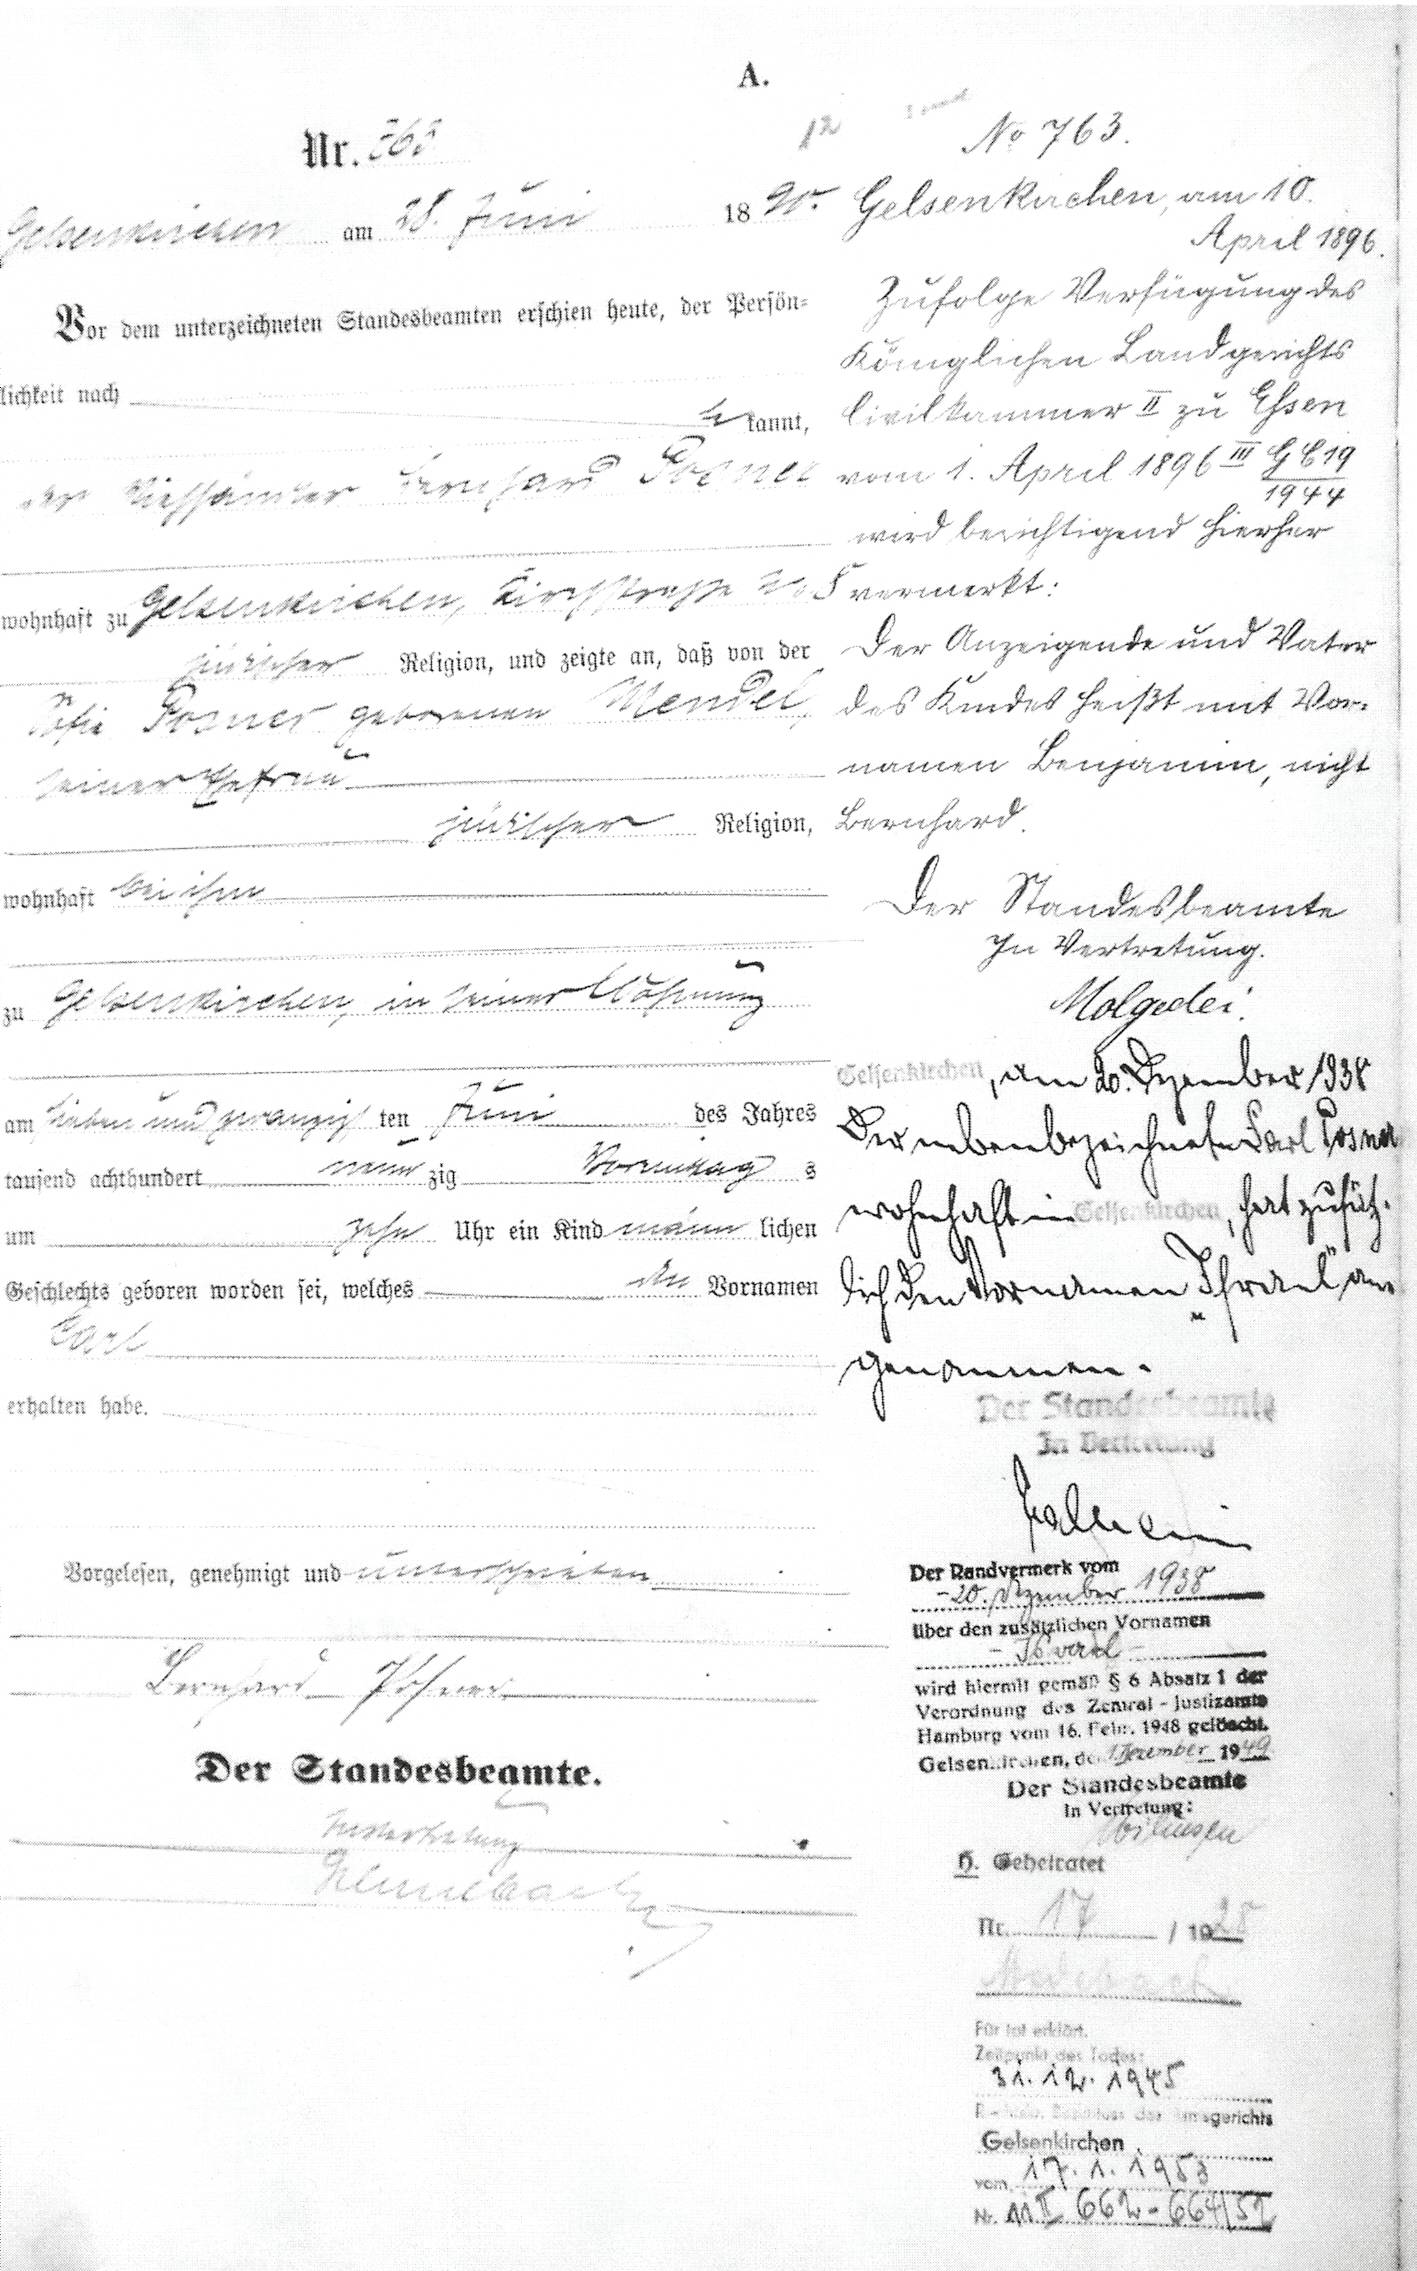 A.
Nr. 763
Gelsenkirchen am 28. Juni 1890.
Vor dem unterzeichneten Standesbeamten erschien heute, der Persön-
lichkeit nach
kannt,
der Viehhändler Bernhard Posner
wohnhaft zu Gelsenkirchen, Kirchstraße No 5
jüdischer Religion, und zeigte an, daß von der
Sofie Posner geborenen Mendel,
seiner Ehefrau
jüdischer Religion,
wohnhaft bei ihm
zu Gelsenkirchen, in seiner Wohnung
am sieben und zwanzigsten Juni des Jahres
tausend achthundert neunzig Vormittags
um zehn Uhr ein Kind männlichen
Geschlechts geboren worden sei, welches den Vornamen
Carl
erhalten habe.
Vorgelesen, genehmigt und unterschrieben
Bernhard Posner
Der Standesbeamte.
In Vertretung
12
No 763.
Gelsenkirchen, am 10.
April 1896.
Zufolge Verfügung des
Königlichen Landgerichts
Civilkammer II zu Essen
vom 1. April 1896 III G C 19
1944
wird berichtigend hierher
vermerkt:
Der Anzeigende und Vater
des Kindes heißt mit Vor-
namen Benjamin, nicht
Bernhard.
Der Standesbeamte
In Vertretung.
Molgedei.
Gelsenkirchen, am 20. Dezember 1938
Der nebenbezeichnete Carl Posner
wohnhaft in Gelsenkirchen, hat zusätz-
lich den Vornamen „Israel" an
genommen.
Der Standesbeamte
In Vertretung
Der Randvermerk vom
-20. Dezember 1938
über den zusätzlichen Vornamen
- Israel -
wird hiermit gemäß § 6 Absatz 1 der
Verordnung des Zentral-Justizamts
Hamburg vom 16. Febr. 1948 gelöscht.
Gelsenkirchen, den 1. Dezember 1949
Der Standesbeamte
In Vertretung:
H. Geheiratet
Nr. 17 / 1928
Medebach
Für tot erklärt.
Zeitpunkt des Todes:
31.12.1945
Beschluss des Amtsgerichts
Gelsenkirchen
vom 17.1.1953
Nr. 11 II 662-664/52